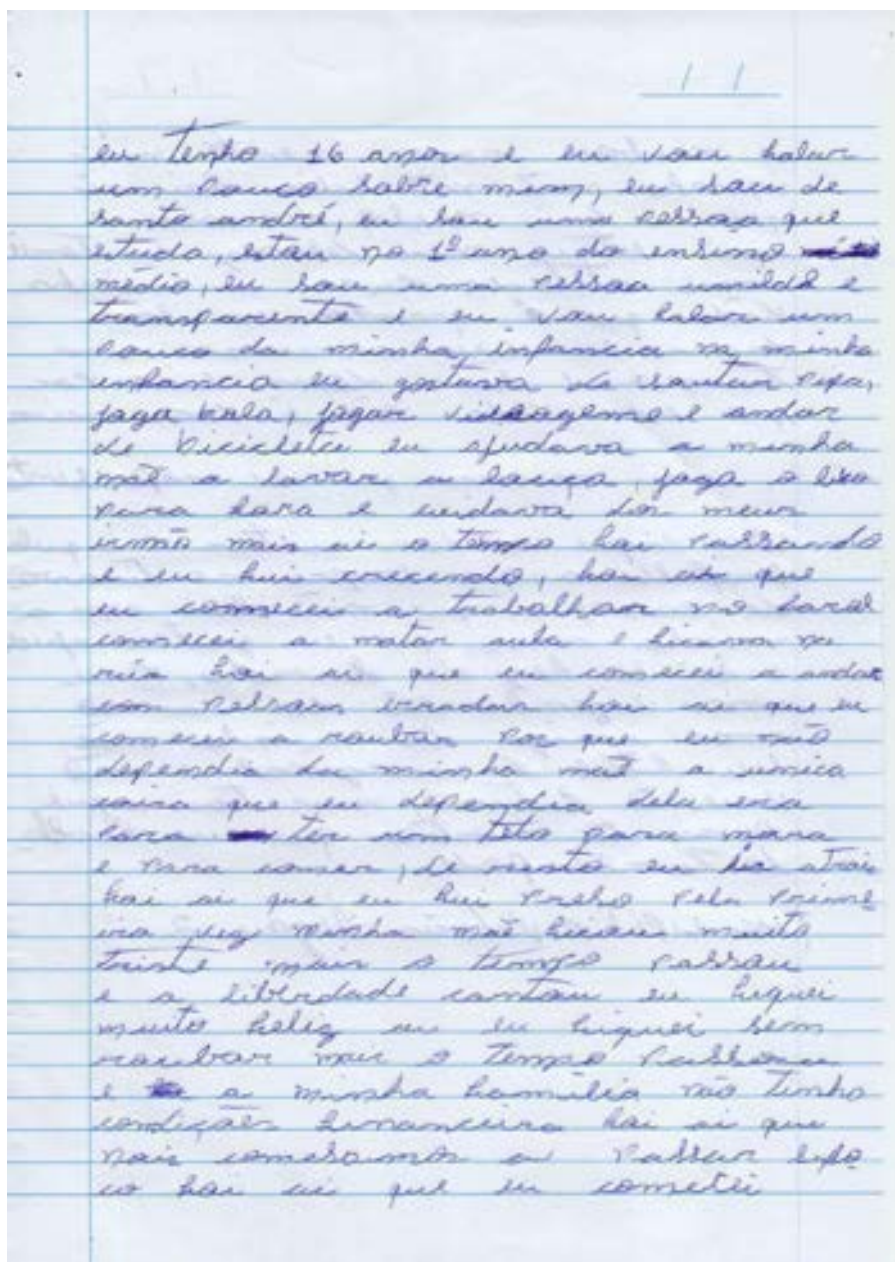 eu tenho 16 anos e eu vou falar
um pouco sobre mim, eu sou de
santo andré, eu sou uma pessoa que
estudo, estou no 1º ano do ensino
médio, eu sou uma pessoa umilde e
transparente e eu vou falar um
pouco da minha infancia na minha
enfancia eu gostava de soutar pipa,
joga bola, jogar videogeme e andar
de bicicleta eu ajudava a minha
mãe a lavar a louça, joga o lixo
para fora e cuidava dos meus
irmão mais ai o tempo foi passando
e eu fui crecendo, foi ai que
eu comecei a trabalhar no farol
comecei a matar aula e ficava na
rua foi ai que eu comecei a andar
com pessoas erradas foi ai que eu
comecei a roubar por que eu não
dependia da minha mãe a unica
coisa que eu dependia dela era
para ter um teto para mora
e para comer, de resto eu ia atrai
foi ai que eu fui preso pela prime
ira vez minha mãe ficou muito
triste mais o tempo passou
e a liberdade cantou eu fiquei
muito feliz eu fiquei sem
roubar mais o tempo passou
e a minha familia não tinha
condições financeira foi ai que
nois comesamos a passar
co foi ai que eu cometei